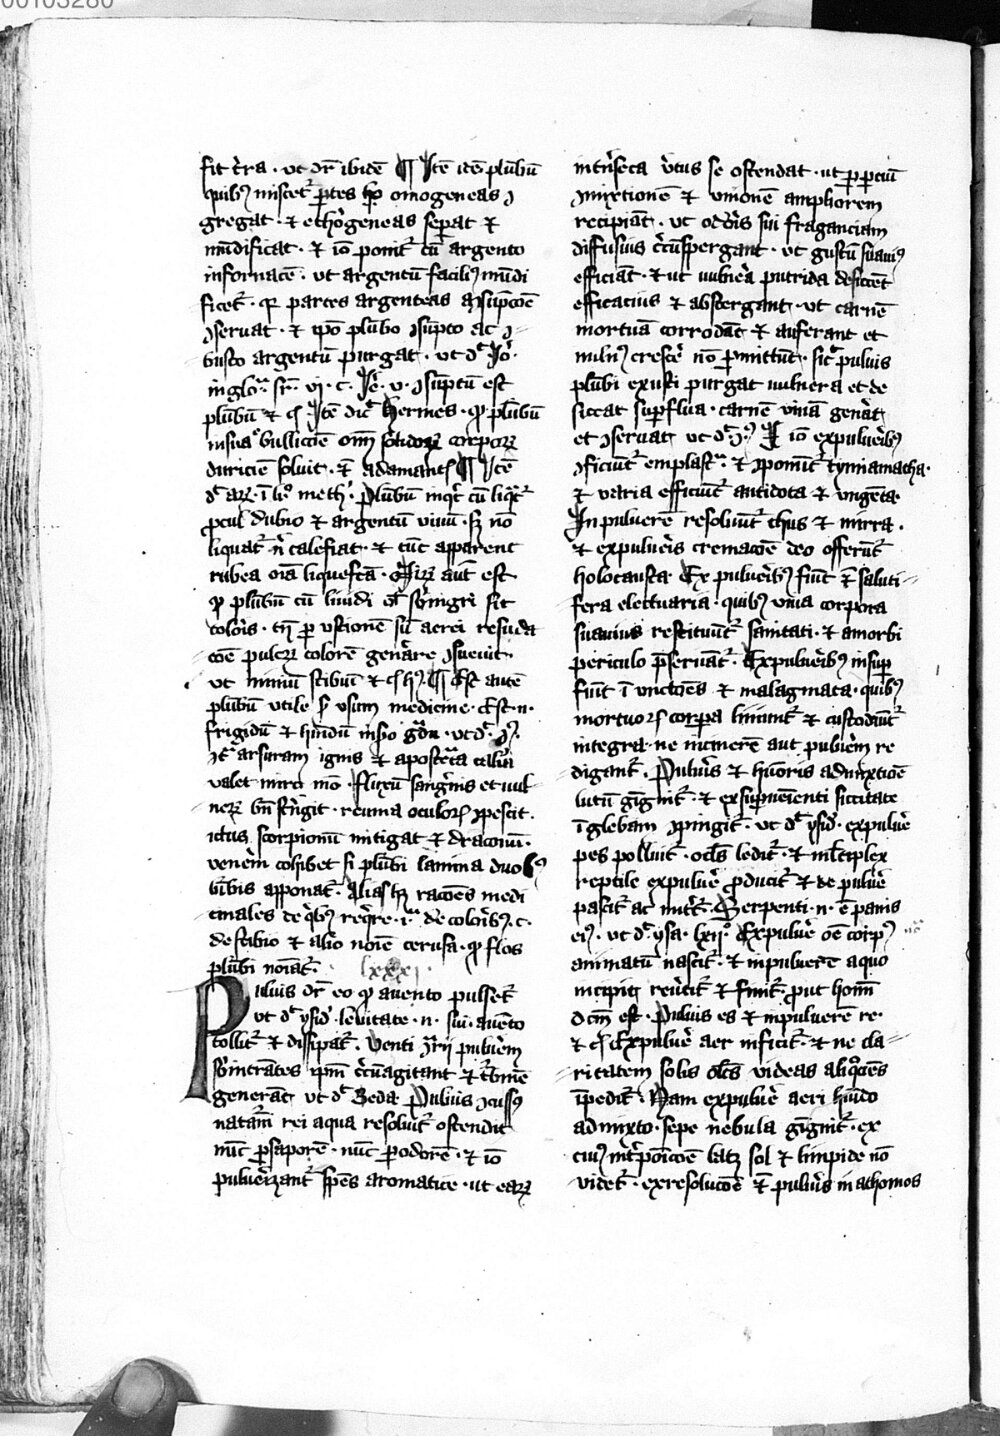 00103280
fit tr̄ra · ut dr̄ ibidē ¶ Itē idē plūbū
quibꝫ miscet᷑ ꝑtes hō omogeneas ꝯ
gregat · ⁊ ethrogeneas seꝑat ⁊
mūdificat · ⁊ iō ponit᷑ cū argento
in fornace · ut argentū faciliꝰ mūdi
ficet᷑ · qꝛ partes argenteas
ꝯseruat · ⁊ ip̄o plūbo ꝯsūpto ac ꝯ
busto argentū purgat · ut d᷑ Iō ·
in glo · sr̄ · vj · c · Ie · v · ꝯsūptū est
plūbū ⁊ c̄ Itē dic̄ Hermes · ꝙ plūbū
in sua bullicōe om̄ solidoꝝ corpoꝝ
duriciē soluit · ⁊ adamant ¶ Itē
d᷑ ar · ī li° meth · Plūbū inqt cū liq̄t᷑
ꝓcul dubio ⁊ argentū viuū · sꝫ nō
liquat᷑ n̄ calefiat · ⁊ tūc apparent
rubea oīa liquefcā · aut̄ est
ꝙ plūbū cū liuidi ul̓ sbnigri sit
coloris · tn̄ ꝑ ustionē sū aerei resuda
cōe pulcꝝ colorē gen̄are ꝯsueuit
ut miniū stibiū ⁊ c̄ hꝰ ¶ Est autē
plūbū utile ꝯ usum medicine · Est · n ·
frigidū ⁊ hūidū in ṗo gdu · ut d᷑ ·
ꝯt᷑ arsuram ignis ⁊ apostēta calida
valet miro mō · fluxū sangͥnis et uul
neꝝ bn̄ stͥngit · reuma oculoꝝ ꝯpescit ·
ictus scorpionū mitigat ⁊ draconū ·
venēm cohibet si plūbi lamina duobꝰ
vībis apponat᷑ · Alias hꝫ racōes medi
cinales de qͥbꝰ reqͥre · ī de coloribꝰ · c ·
de stibio ⁊ alio noīe cerusa · ꝙ flos
plūbi noīat᷑ · lxxxj ·
Puluis dr̄ eo ꝙ a uento pulset᷑
ut d᷑ ysid᷑ · leuitate · n · sui a uēto
tollit᷑ ⁊ dissipat᷑ · Venti ꝯrͥi puluēm
sbintrātes ip̄m cͥcūagitant ⁊ tͥbinē
generāt ut d᷑ Beda Puluis ꝯcussꝰ
natam̄ rei aqua resoluit᷑ ostendit
nūc ꝑ saporē · nūc ꝑ odorē · ⁊ iō
puluerͥzant᷑ sp̄es aromatice · ut eaꝝ
intrͥseca ūtus se ostendat · ut ꝑ ꝑtiū
ꝯmixtionē ⁊ unionē ampliorem
recipiāt · ut odoris sui fraganciam
diffusius cͥcūspergant · ut gustū suauiꝰ
efficiāt · ⁊ ut uulnera putrida desiccēt
efficacius ⁊ abstergant · ut carnē
mortuā corrodāt ⁊ auferant et
crescͤ nō ꝑmittūt · sic̄ puluis
plūbi exusti purgat uulnera et de
siccat suꝑflua · carnē viuā gen̄at
et ꝯseruat ut d᷑ iō ex puluerͥbꝰ
ꝯficiūt᷑ emplast · ⁊ ꝯponūt᷑ tymiamatha ·
⁊ varia efficiūt᷑ antidota ⁊ ungēta ·
In puluere resoluūt᷑ thus ⁊ mirra ·
⁊ ex pulueris cremacōe deo offerūt᷑
holocausta Ex puluerͥbꝰ fiūt ⁊ saluti
fera electuaria · quibꝰ viua corpora
suauius restituūt᷑ sanitati · ⁊ a morbi
periculo p̄seruāt᷑ · Ex puluerͥbꝰ insuꝑ
fiūt ī unctōes ⁊ malagmata · quibꝰ
mortuoꝝ corpa liniunt᷑ ⁊ custodiūt᷑
integra · ne incinerē aut pulūem re
digant᷑ · Puluis ⁊ hūoris admixtiōe
lutū gͥgnit᷑ · ⁊ ex suꝑueīenti siccitate
ī glebam ꝯpingit᷑ · ut d᷑ ysid · ex puluē
pes polluit᷑ · ocls ledit᷑ · ⁊ ml̄tiplex
reptile ex puluē ꝓducit᷑ ⁊ de puluē
pascit᷑ ac nutͥt᷑ · Serpenti · n · ē panis
eiꝰ · ut d᷑ ysa · lxii° Ex puluē oē corpꝰ
animatū nascit᷑ · ⁊ in puluere a quo
incipit reūtit᷑ ⁊ finit᷑ ꝓut homī
dcm̄ est · Puluis es ⁊ in puluerē re ·
⁊ c̄ Ex puluē aer inficit᷑ · ⁊ ne cla
ritatem solis ocls videas aliqͦciēs
īpedit᷑ · Nam ex puluē aeri hūido
admixto · sepe nebula gͥgnit᷑ · ex
ciuꝰ intͥpoicōe latꝫ sol ⁊ limpide nō
videt᷑ · ex resolucōe ⁊ puluīs in athomos